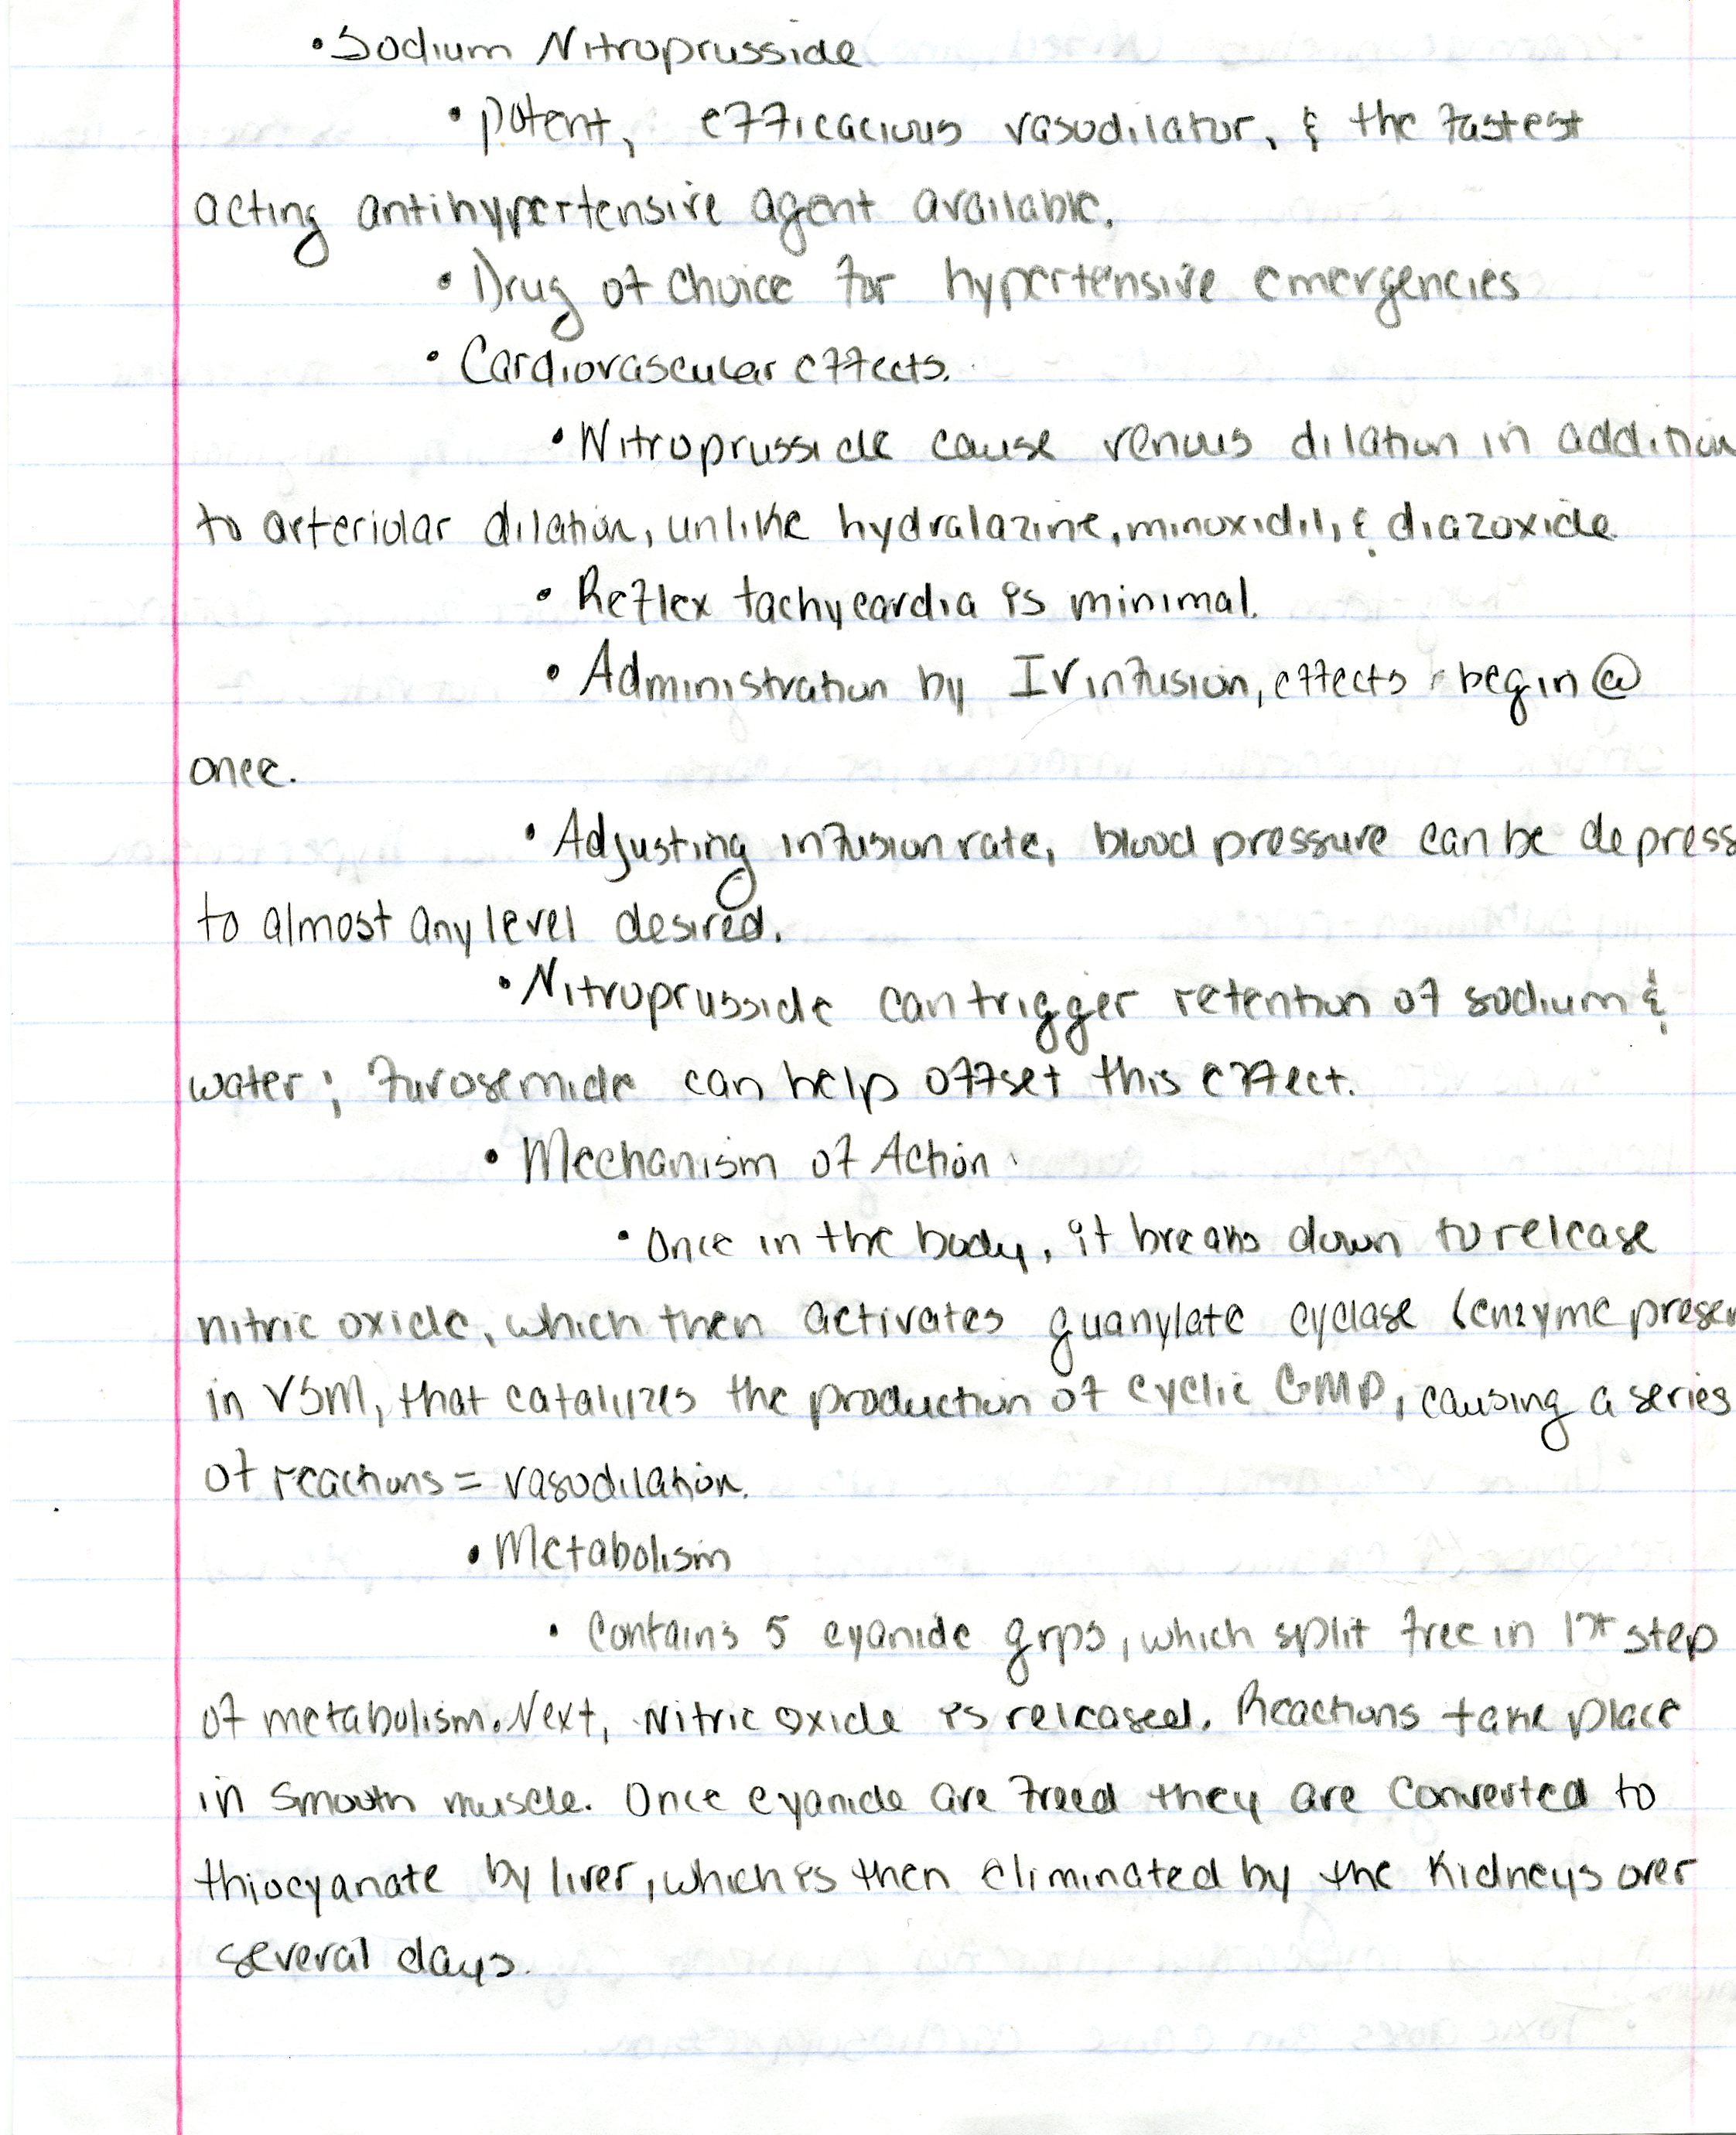 • Sodium Nitroprusside
• Potent, efficacious vasodilator, & the fastest
acting antihypertensive agent available.
• Drug of choice for hypertensive emergencies
• Cardiovascular effects.
• Nitroprusside cause venous dilation in addition
to arteriolar dilation, unlike hydralazine, minoxidil, & diazoxide
• Reflex tachycardia is minimal.
• Administration by IV infusion, effects begin @
once.
• Adjusting infusion rate, blood pressure can be depress
to almost any level desired.
• Nitroprusside can trigger retention of sodium &
water; furosemide can help offset this effect.
• Mechanism of Action
• Once in the body, it breaks down to release
nitric oxide, which then activates guanylate cyclase (enzyme presen
in VSM, that catalyzes the production of cyclic GMP, causing a series
of reactions = vasodilation.
• Metabolism
• Contains 5 cyanide grps, which split free in 1st step
of metabolism. Next, Nitric oxide is released. Reactions take place
in smooth muscle. Once cyanide are freed they are converted to
thiocyanate by liver, which is then eliminated by the Kidneys over
several days.